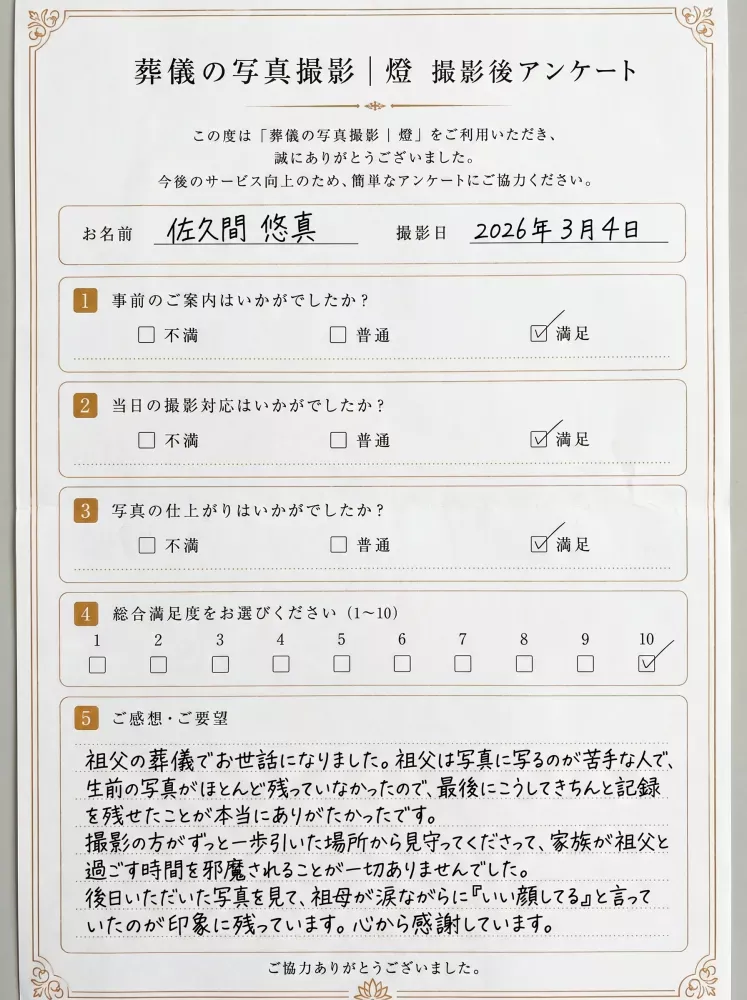 葬儀の写真撮影｜燈 撮影後アンケート
この度は「葬儀の写真撮影｜燈」をご利用いただき、
誠にありがとうございました。
今後のサービス向上のため、簡単なアンケートにご協力ください。
お名前 佐久間 悠真 撮影日 2026年3月4日
1 事前のご案内はいかがでしたか？
□ 不満 □ 普通 ☑ 満足
2 当日の撮影対応はいかがでしたか？
□ 不満 □ 普通 ☑ 満足
3 写真の仕上がりはいかがでしたか？
□ 不満 □ 普通 ☑ 満足
4 総合満足度をお選びください（1〜10）
1 2 3 4 5 6 7 8 9 10
□ □ □ □ □ □ □ □ □ ☑
5 ご感想・ご要望
祖父の葬儀でお世話になりました。祖父は写真に写るのが苦手な人で、
生前の写真がほとんど残っていなかったので、最後にこうしてきちんと記録
を残せたことが本当にありがたかったです。
撮影の方がずっと一歩引いた場所から見守ってくださって、家族が祖父と
過ごす時間を邪魔されることが一切ありませんでした。
後日いただいた写真を見て、祖母が涙ながらに『いい顔してる』と言って
いたのが印象に残っています。心から感謝しています。
ご協力ありがとうございました。